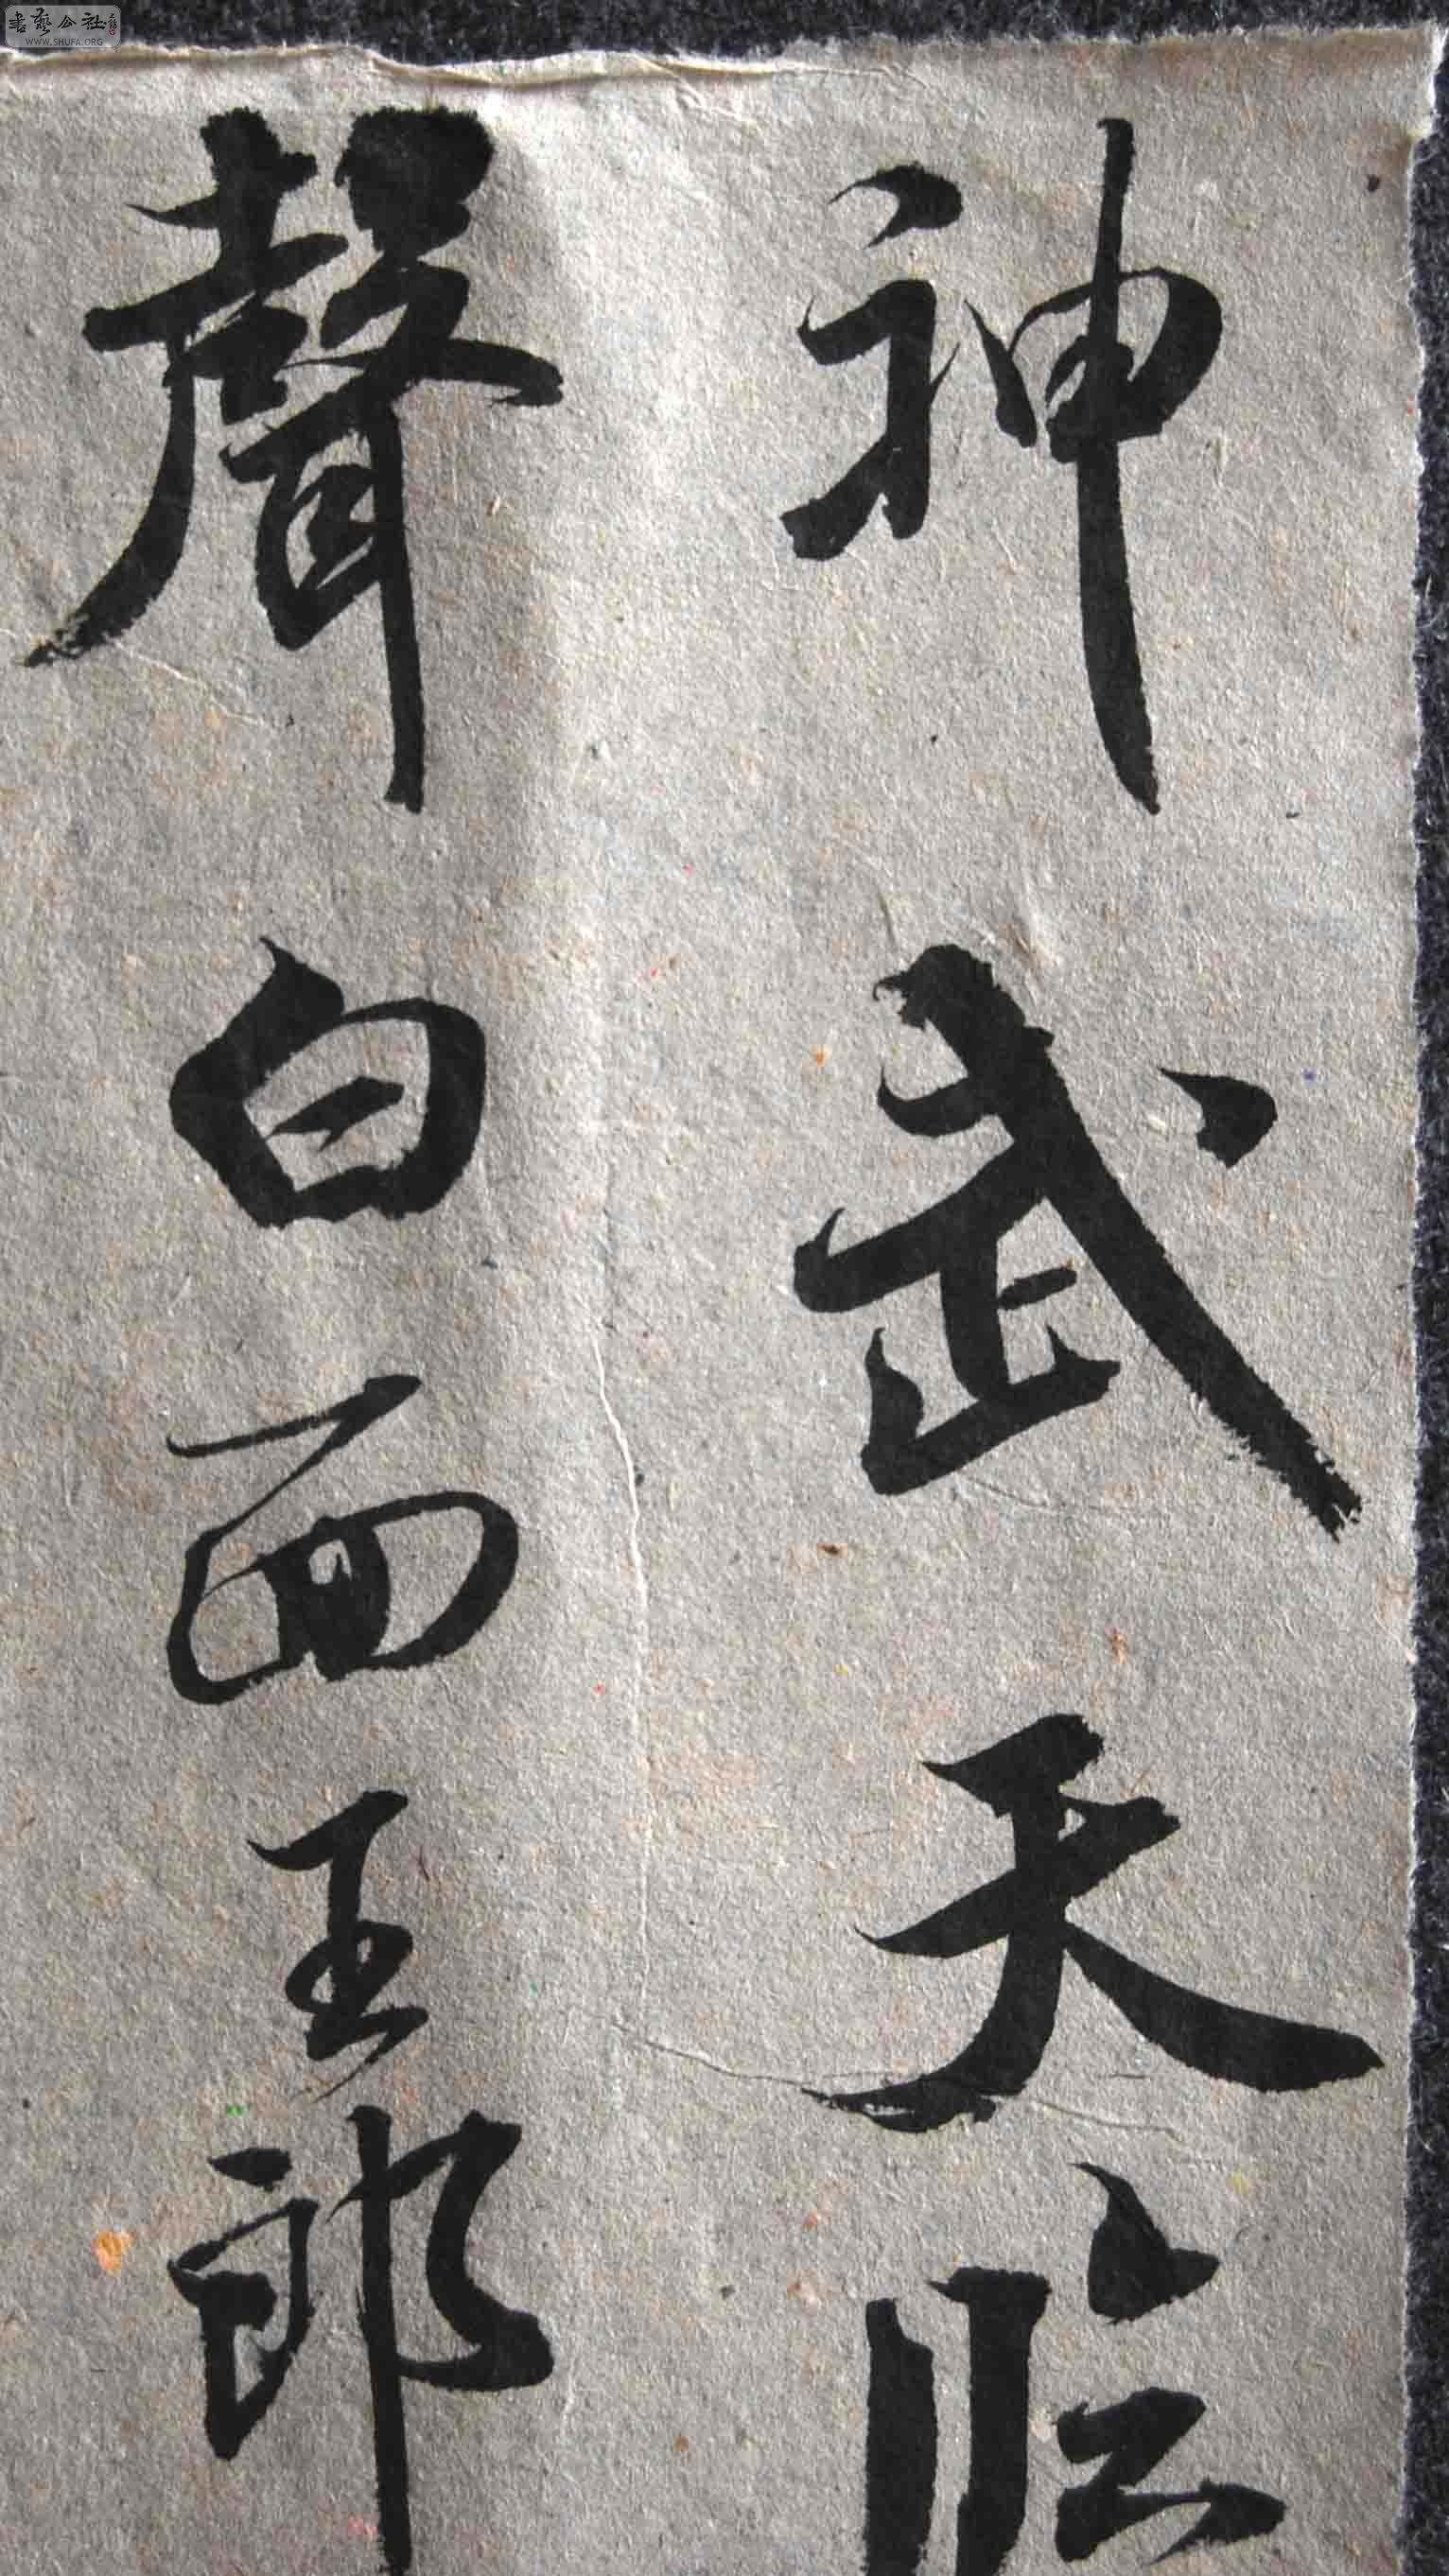 神武天臨
聲白面王郎
書藝公社
WWW.SHUFA.ORG